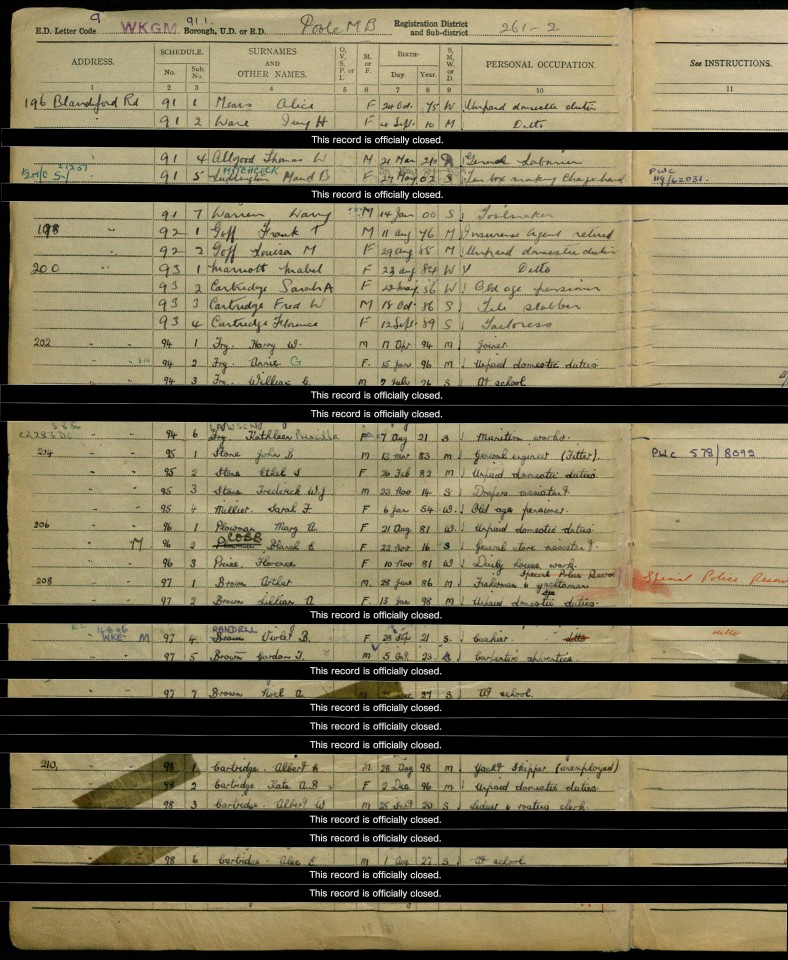 9
E.D. Letter Code WKGM 91 1. Borough, U.D. or R.D. Poole M B Registration District and Sub-district 261-2
ADDRESS. SCHEDULE. SURNAMES AND OTHER NAMES. O, V, S, P. or I M. or F. BIRTH— S, M, W. or D. PERSONAL OCCUPATION. See INSTRUCTIONS.
No. Sub. No. Day. Year.
1 2 3 4 5 6 7 8 9 10 11
196 Blandford Rd 91 1 Mears Alice F 24 Oct. 75 W Unpaid domestic duties
91 2 Ware Ivy H F 4 Sept. 10 M Ditto
This record is officially closed.
91 4 Allgood Thomas W M 21 Mar General Labourer
HITCHCOCK PWC
91 5 Luddington Maud B F 27 May 02 S 119/62031.
This record is officially closed.
91 7 Warren Harry M 14 Jan 00 S Toolmaker
198 92 1 Goff Frank T M 11 Aug 76 M Insurance Agent retired
92 2 Goff Louisa M F 29 Aug 85 M Unpaid domestic duties
200 93 1 Marriott Mabel F 23 Aug 84 W Ditto
93 2 Cartridge Sarah A F 12 May 56 W Old age pensioner
93 3 Cartridge Fred W M 18 Oct. 86 S Tile Slabber
93 4 Cartridge Florence F 12 Sept. 89 S Tailoress
202 94 1 Fry. Harry W. M 17 Apr 94 M Joiner.
94 2 Fry. Annie G F. 15 Jan 96 M Unpaid domestic duties
94 3 Fry. William G. M 7 July 26 S At school
This record is officially closed.
This record is officially closed.
94 6 Fry. Kathleen Priscilla F 7 Aug 21 S Munition works.
204 95 1 Stone John B M 13 Mar 83 M General engineer (Fitter). PWC 578/8092
95 2 Stone Ethel S F 26 Feb 82 M Unpaid domestic duties.
95 3 Stone Frederick W.J M 23 Nov 14 S Drapers assistant
95 4 Millier. Sarah F F 6 Jan 54 W. Old age pensioner.
206 96 1 Plowman Mary A. F 21 Aug 81 W. Unpaid domestic duties.
COBB
M 96 2 Plowman Blanch E F 22 Nov 16 S General store assistant.
96 3 Price. Florence F 10 Nov 81 W Daily house work.
Special Police Reserve
208 97 1 Brown Arthur M. 28 June 86 M Fisherman & yachtsman Special Police Reserve
97 2 Brown Lillian A F. 13 Jan 98 M Unpaid domestic duties.
This record is officially closed.
RENDELL
M 97 4 Brown Violet B. F. 28 Sep 21 S. Cashier. ditto ditto
97 5 Brown Gordon J. M 5 Oct 23 S Carpenter apprentice
This record is officially closed.
97 7 Brown Noel A. M 27 S At school.
This record is officially closed.
This record is officially closed.
This record is officially closed.
210, 98 1 Cartridge. Albert M. 28 Aug 98 M Yacht Skipper (unemployed)
98 2 Cartridge Kate A.B F 2 Dec 96 M Unpaid domestic duties.
98 3 Cartridge. Albert W M 25 Sept 20 S Ledger & routing clerk.
This record is officially closed.
This record is officially closed.
98 6 Cartridge. Alec E. M 1 Aug 27 S. At school
This record is officially closed.
This record is officially closed.